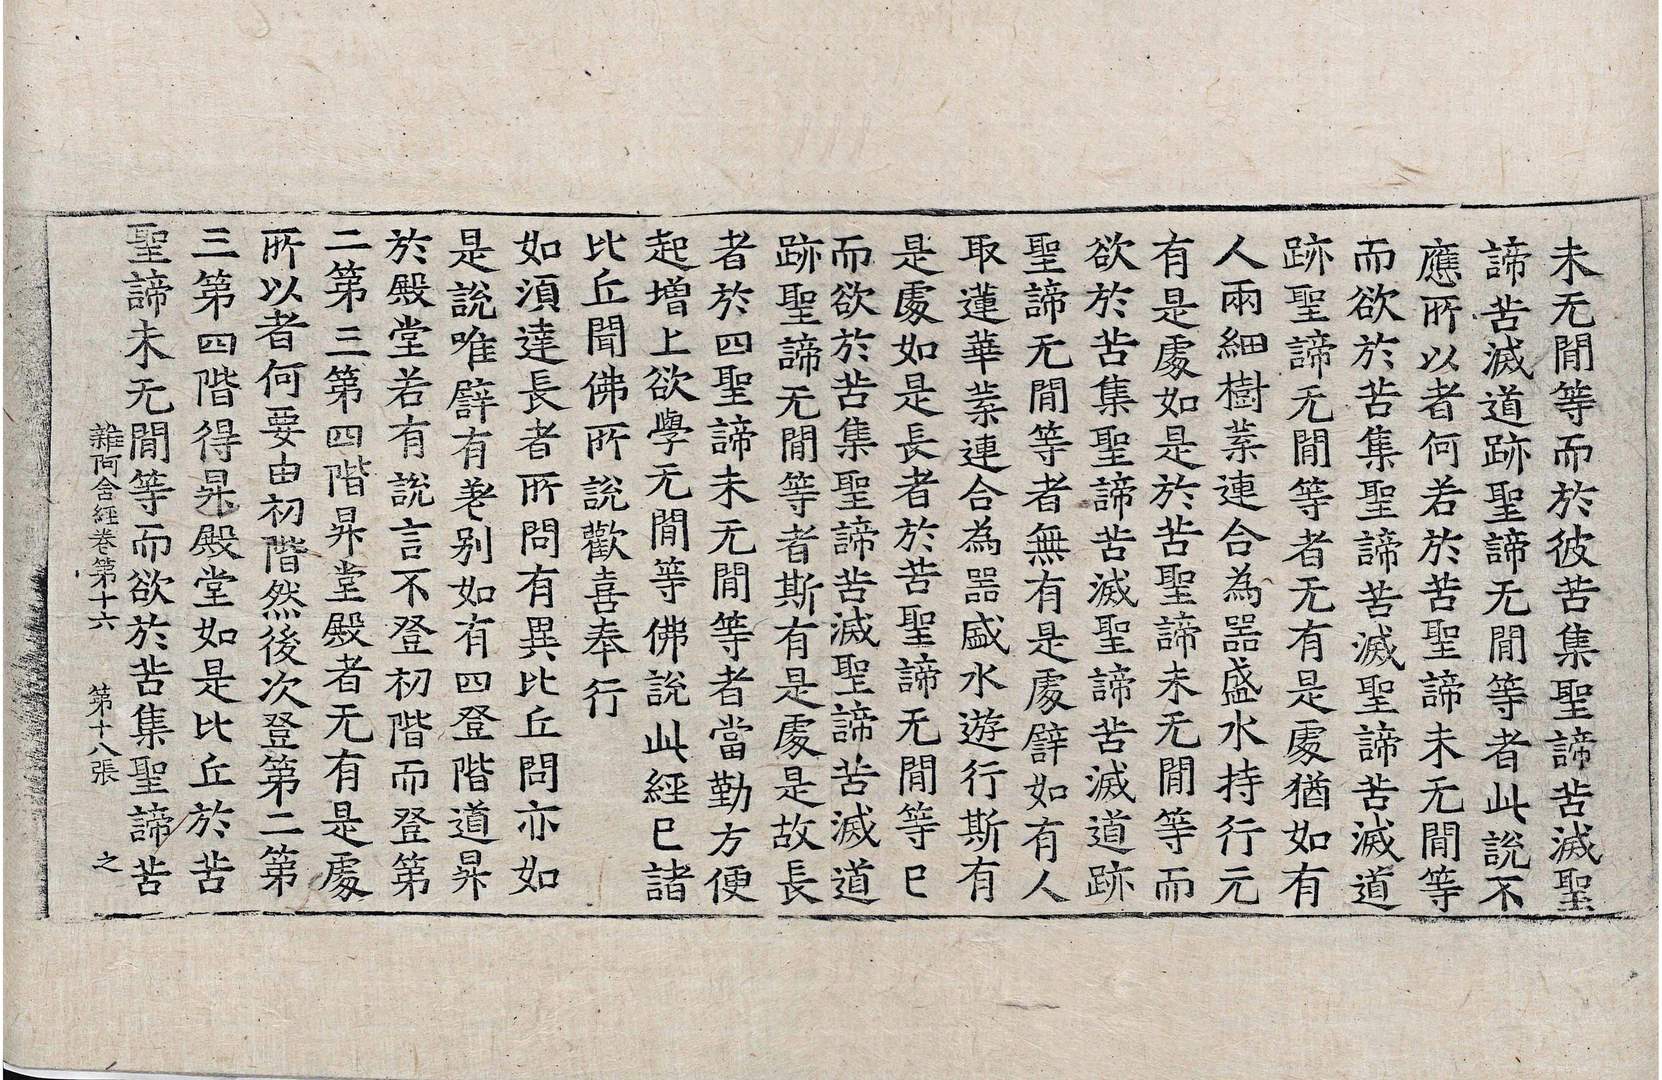 未无閒等而於彼苦集聖諦苦滅聖
諦苦滅道跡聖諦无閒等者此說不
應所以者何若於苦聖諦未无閒等
而欲於苦集聖諦苦滅聖諦苦滅道
跡聖諦无閒等者无有是處猶如有
人兩細樹葉連合為器盛水持行无
有是處如是於苦聖諦未无閒等而
欲於苦集聖諦苦滅聖諦苦滅道跡
聖諦无閒等者無有是處譬如有人
取蓮華葉連合為器盛水遊行斯有
是處如是長者於苦聖諦无閒等已
而欲於苦集聖諦苦滅聖諦苦滅道
跡聖諦无閒等者斯有是處是故長
者於四聖諦未无閒等者當勤方便
起增上欲學无閒等佛說此經已諸
比丘聞佛所說歡喜奉行
如湏達長者所問有異比丘問亦如
是說唯譬有差別如有四登階道昇
於殿堂若有說言不登初階而登第
二第三第四階昇堂殿者无有是處
所以者何要由初階然後次登第二第
三第四階得昇殿堂如是比丘於苦
聖諦未无閒等而欲於苦集聖諦苦
雜阿含經卷第十六 第十八張 之